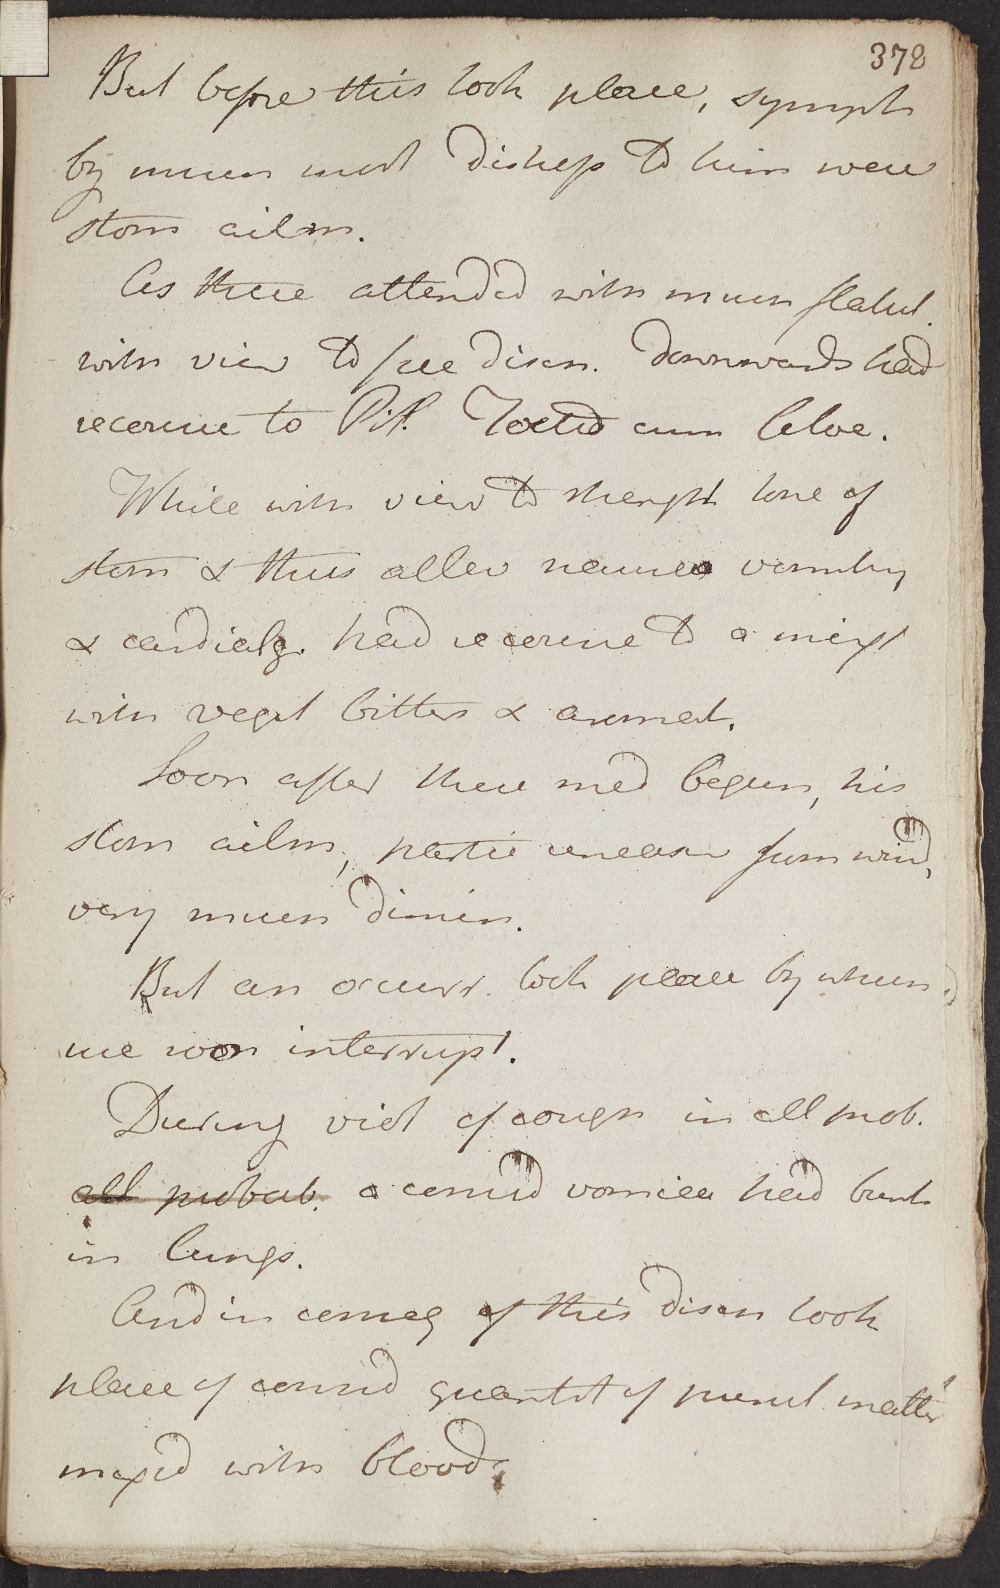 378
But before this took place, sympt
by much most distress to him were
stom ailm.
As these attended with much flatul.
with view to free disch. downwards had
recourse to Pil. Foetid cum Aloe.
While with view to strength tone of
stom & thus allev nausea vomiting
& cardialg. had recourse to a mixt
with veget bitters & aromat.
Soon after these med begun, his
stom ailm, partic uneasin from wind,
very much dimin.
But an occurr. took place by which
we soon interrupt.
During viol of cough in all prob.
all probab. a consid vomica had burst
in lungs.
And in conseq of this disch took
place of consid quantit of purul matter
mixed with blood.